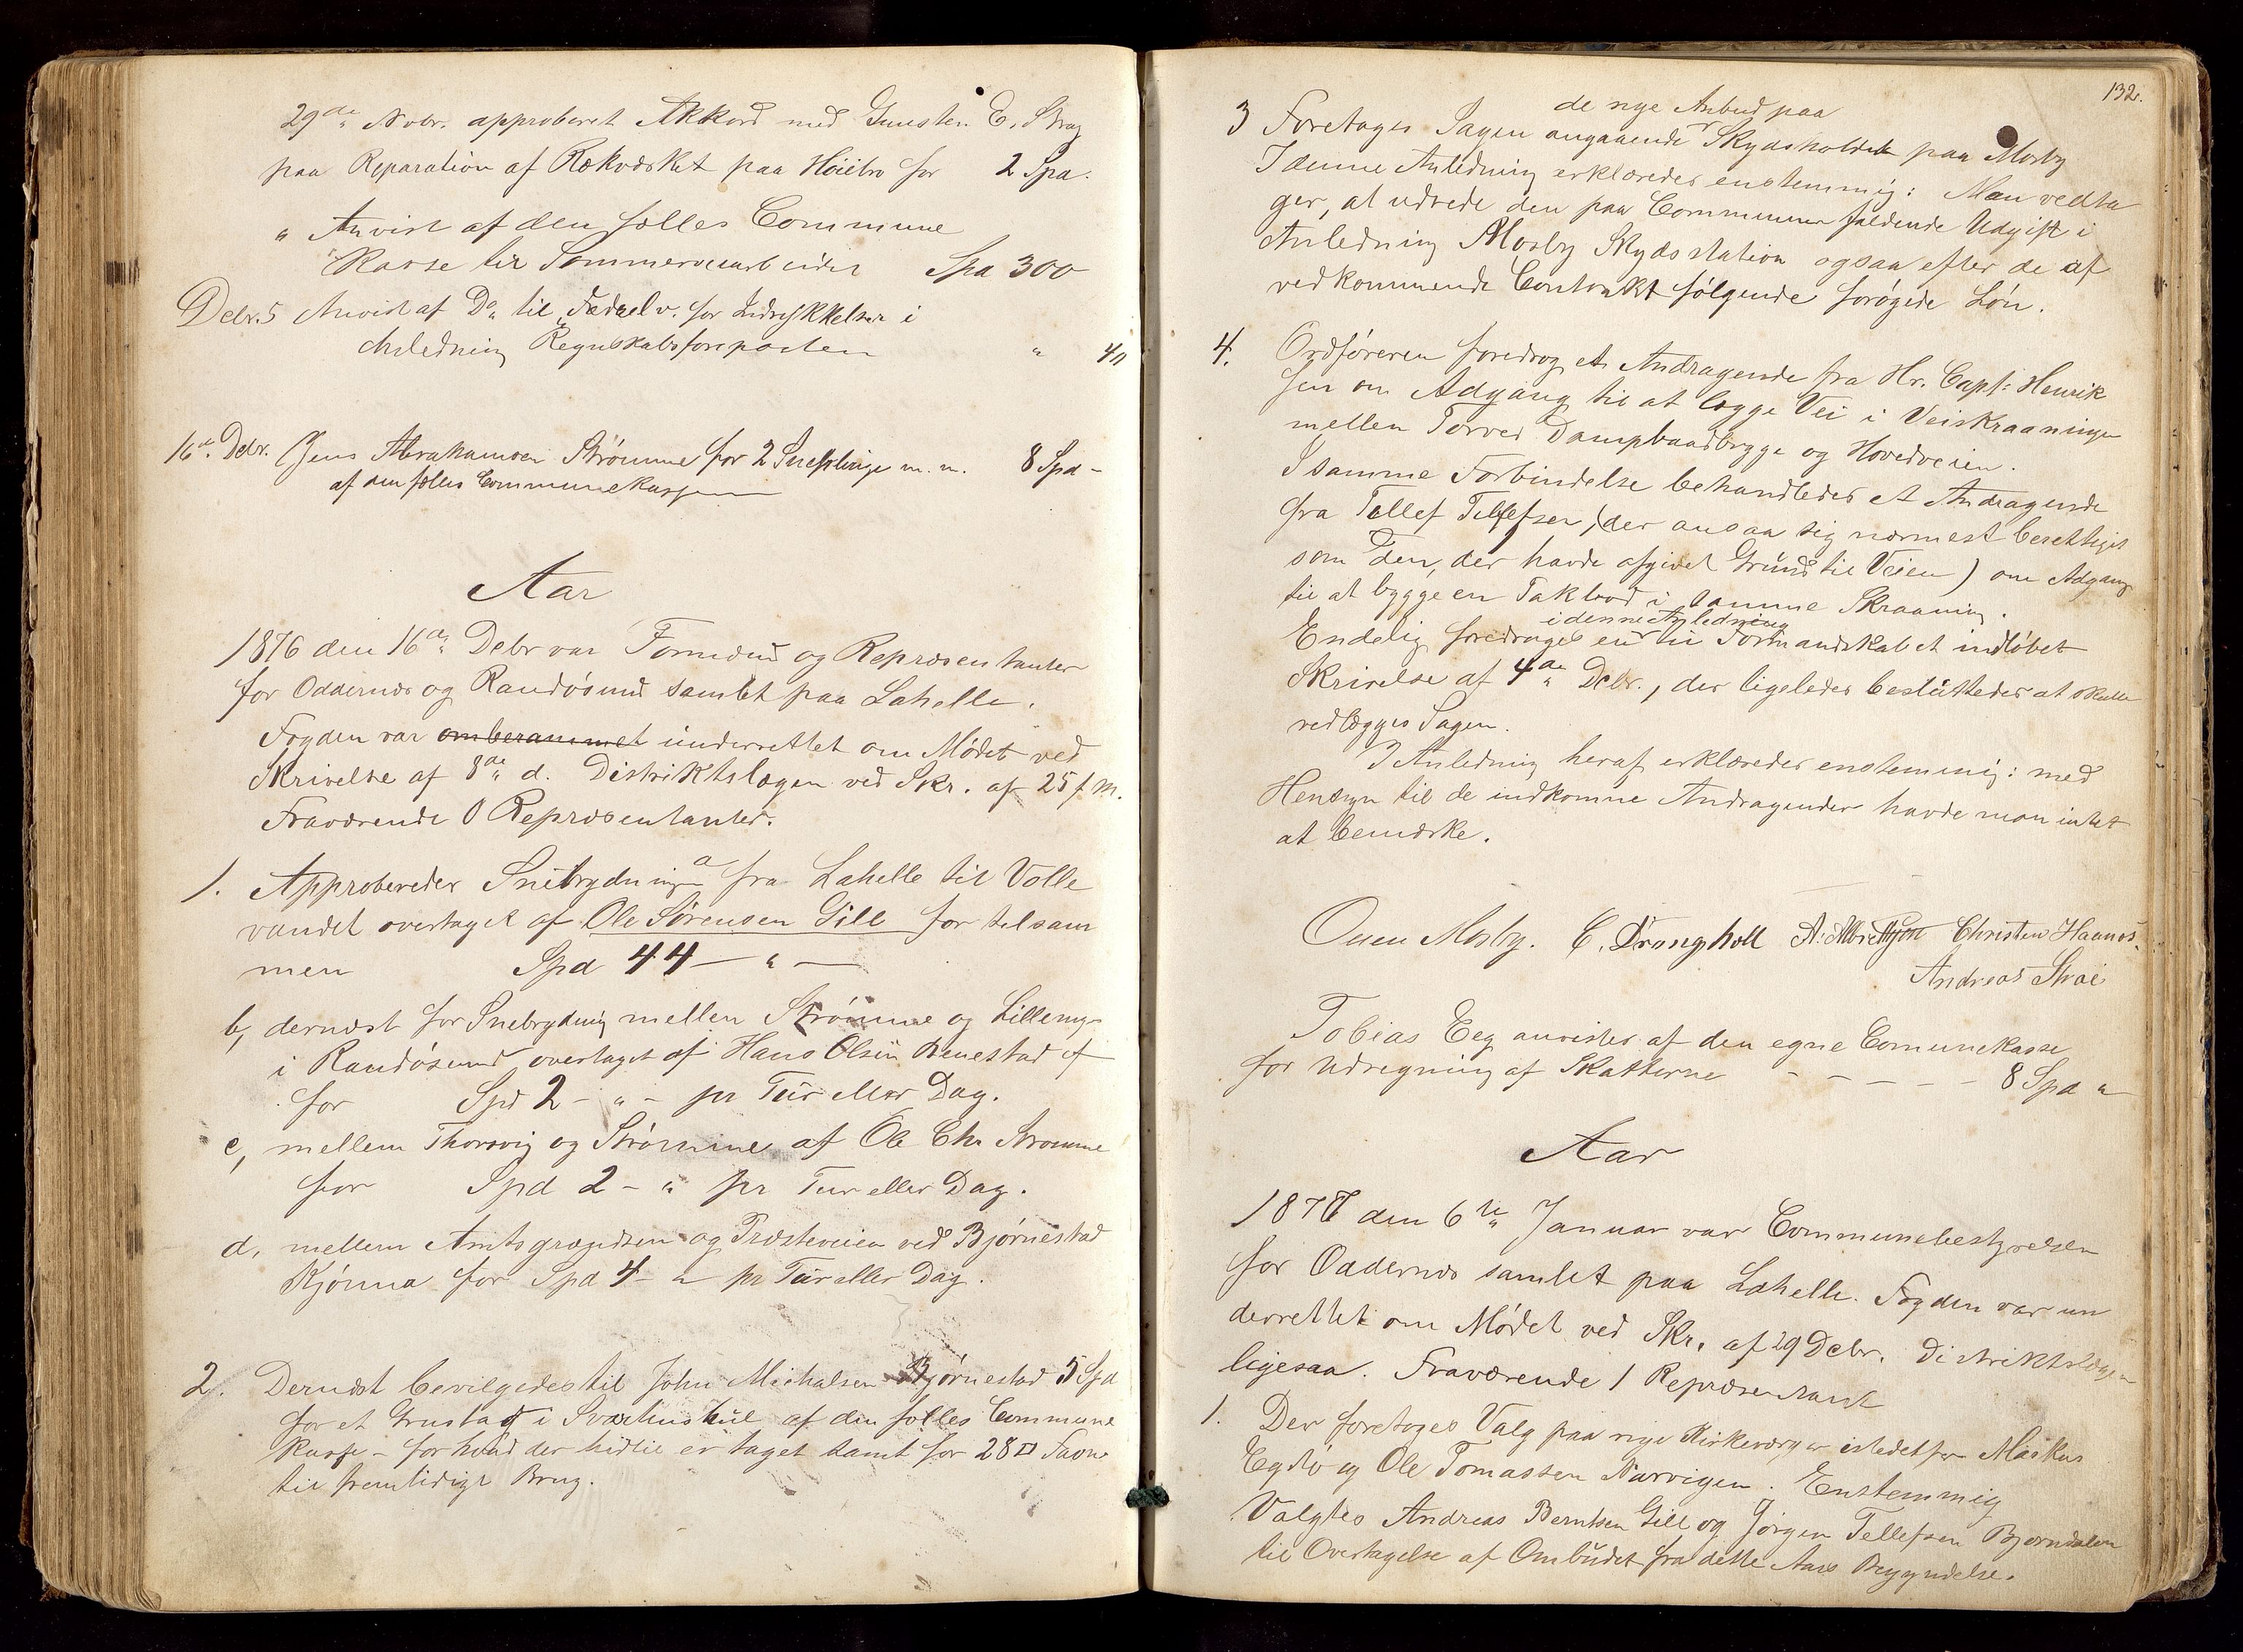 29de Novbr. approberet Akkord med Gunsten E. Stray
paa Reparation af Rækværket paa Høiebro for 2 Spd.
" Anvist af den fælles Commune
Kasse til Sommerveiarbeidet Spd 300
Debr. 5 Anvist af Do til Fædrel.v. for Indrykkelser i
Anledning Regnskabsforeposten " 40
16de Debr. Jens Abrahamsen Strømme for 2 Sneplouge m. m. 8 Spd -
af den fælles Communekasse
Aar
1876 den 16de Debr var Formænd og Repræsentanter
for Oddernæs og Randøsund samlet paa Lahelle.
Fogden var omberammet underrettet om Mødet ved
Skrivelse af 8de d. Distriktslægen ved Skr. af 25 f. M.
Fraværende 0 Repræsentanter.
1. Approberedes Snebrydningen a fra Lahelle til Volle
vandet overtaget af Ole Sørensen Gill for tilsam
men Spd 44 - " -
b, dernæst for Snebrydning mellem Strømme og Lilleny-
i Randøsund overtaget af Hans Olsen Benestad
for Spd 2 - " - pr Tur eller Dag.
c, mellem Thorsvig og Strømme af Ole Chr Strømme
for Spd 2 - " pr Tur eller Dag.
d, mellem Amtsgrændsen og Præsteveien ved Bjørnestad
Kjønna for Spd 4 - " pr Tur eller Dag.
2. Dernæst bevilgedes til John Michalsen Bjørnestad 5 Spd
for et Grustag i Svarthushul af den fælles Commune
Kasse - for hvad der hidtil er taget samt for 28 □ Favne
til fremtidigt Brug.
132.
de nye Anbud paa
3 Foretoges Sagen angaaende Skydsholdet paa Mosby
I denne Anledning erklæredes enstemmig: Man vedta
ger, at udrede den paa Communen faldende Udgift i
Anledning Mosby Skydsstation ogsaa efter de af
vedkommende Contrakt følgende forøgede Løn.
4. Ordføreren foredrog et Andragende fra Hr. Capt: Henrik
sen om Adgang til at lægge Vei i Veiskraaningen
mellem Torvei Dampbaadbrygge og Hovedveien.
I samme Forbindelse behandledes et Andragende
fra Tellef Tellefsen, (der ansaa sig nærmest berettiget
som Den, der havde afgivet Grund til Veien) om Adgang
til at bygge en Takbod i samme Skraaning.
i denne Anledning
Endelig foredroges en til Formandskabet indløbet
Skrivelse af 4de Debr., der ligeledes besluttedes at skulle
vedlægges Sagen.
I Anledning heraf erklæredes enstemmig: med
Hensyn til de indkomne Andragender havde man intet
at bemærke.
Ouen Mosby. C. Drangholt A. Albretsen Christen Haanes.
Andreas Strai
Tobias Eeg anvistes af den egne Comunekasse
for Udregning af Skatterne - - - - - 8 Spd "
Aar
1877 den 6te Januar var Communebestyrelsen
for Oddernæs samlet paa Lahelle. Fogden var un
derrettet om Mødet ved Skr. af 29 Debr. Distriktslægen
ligesaa. Fraværende 1 Repræsentant
1. Der foretoges Valg paa nye Kirkeværger istedetfor Markus
Egdø og Ole Tomassen Narvigen. Enstemmig
Valgtes Andreas Berntsen Gill og Jørgen Tellefsen Bjørndalen
til Overtagelse af Ombudet fra dette Aars Begyndelse.